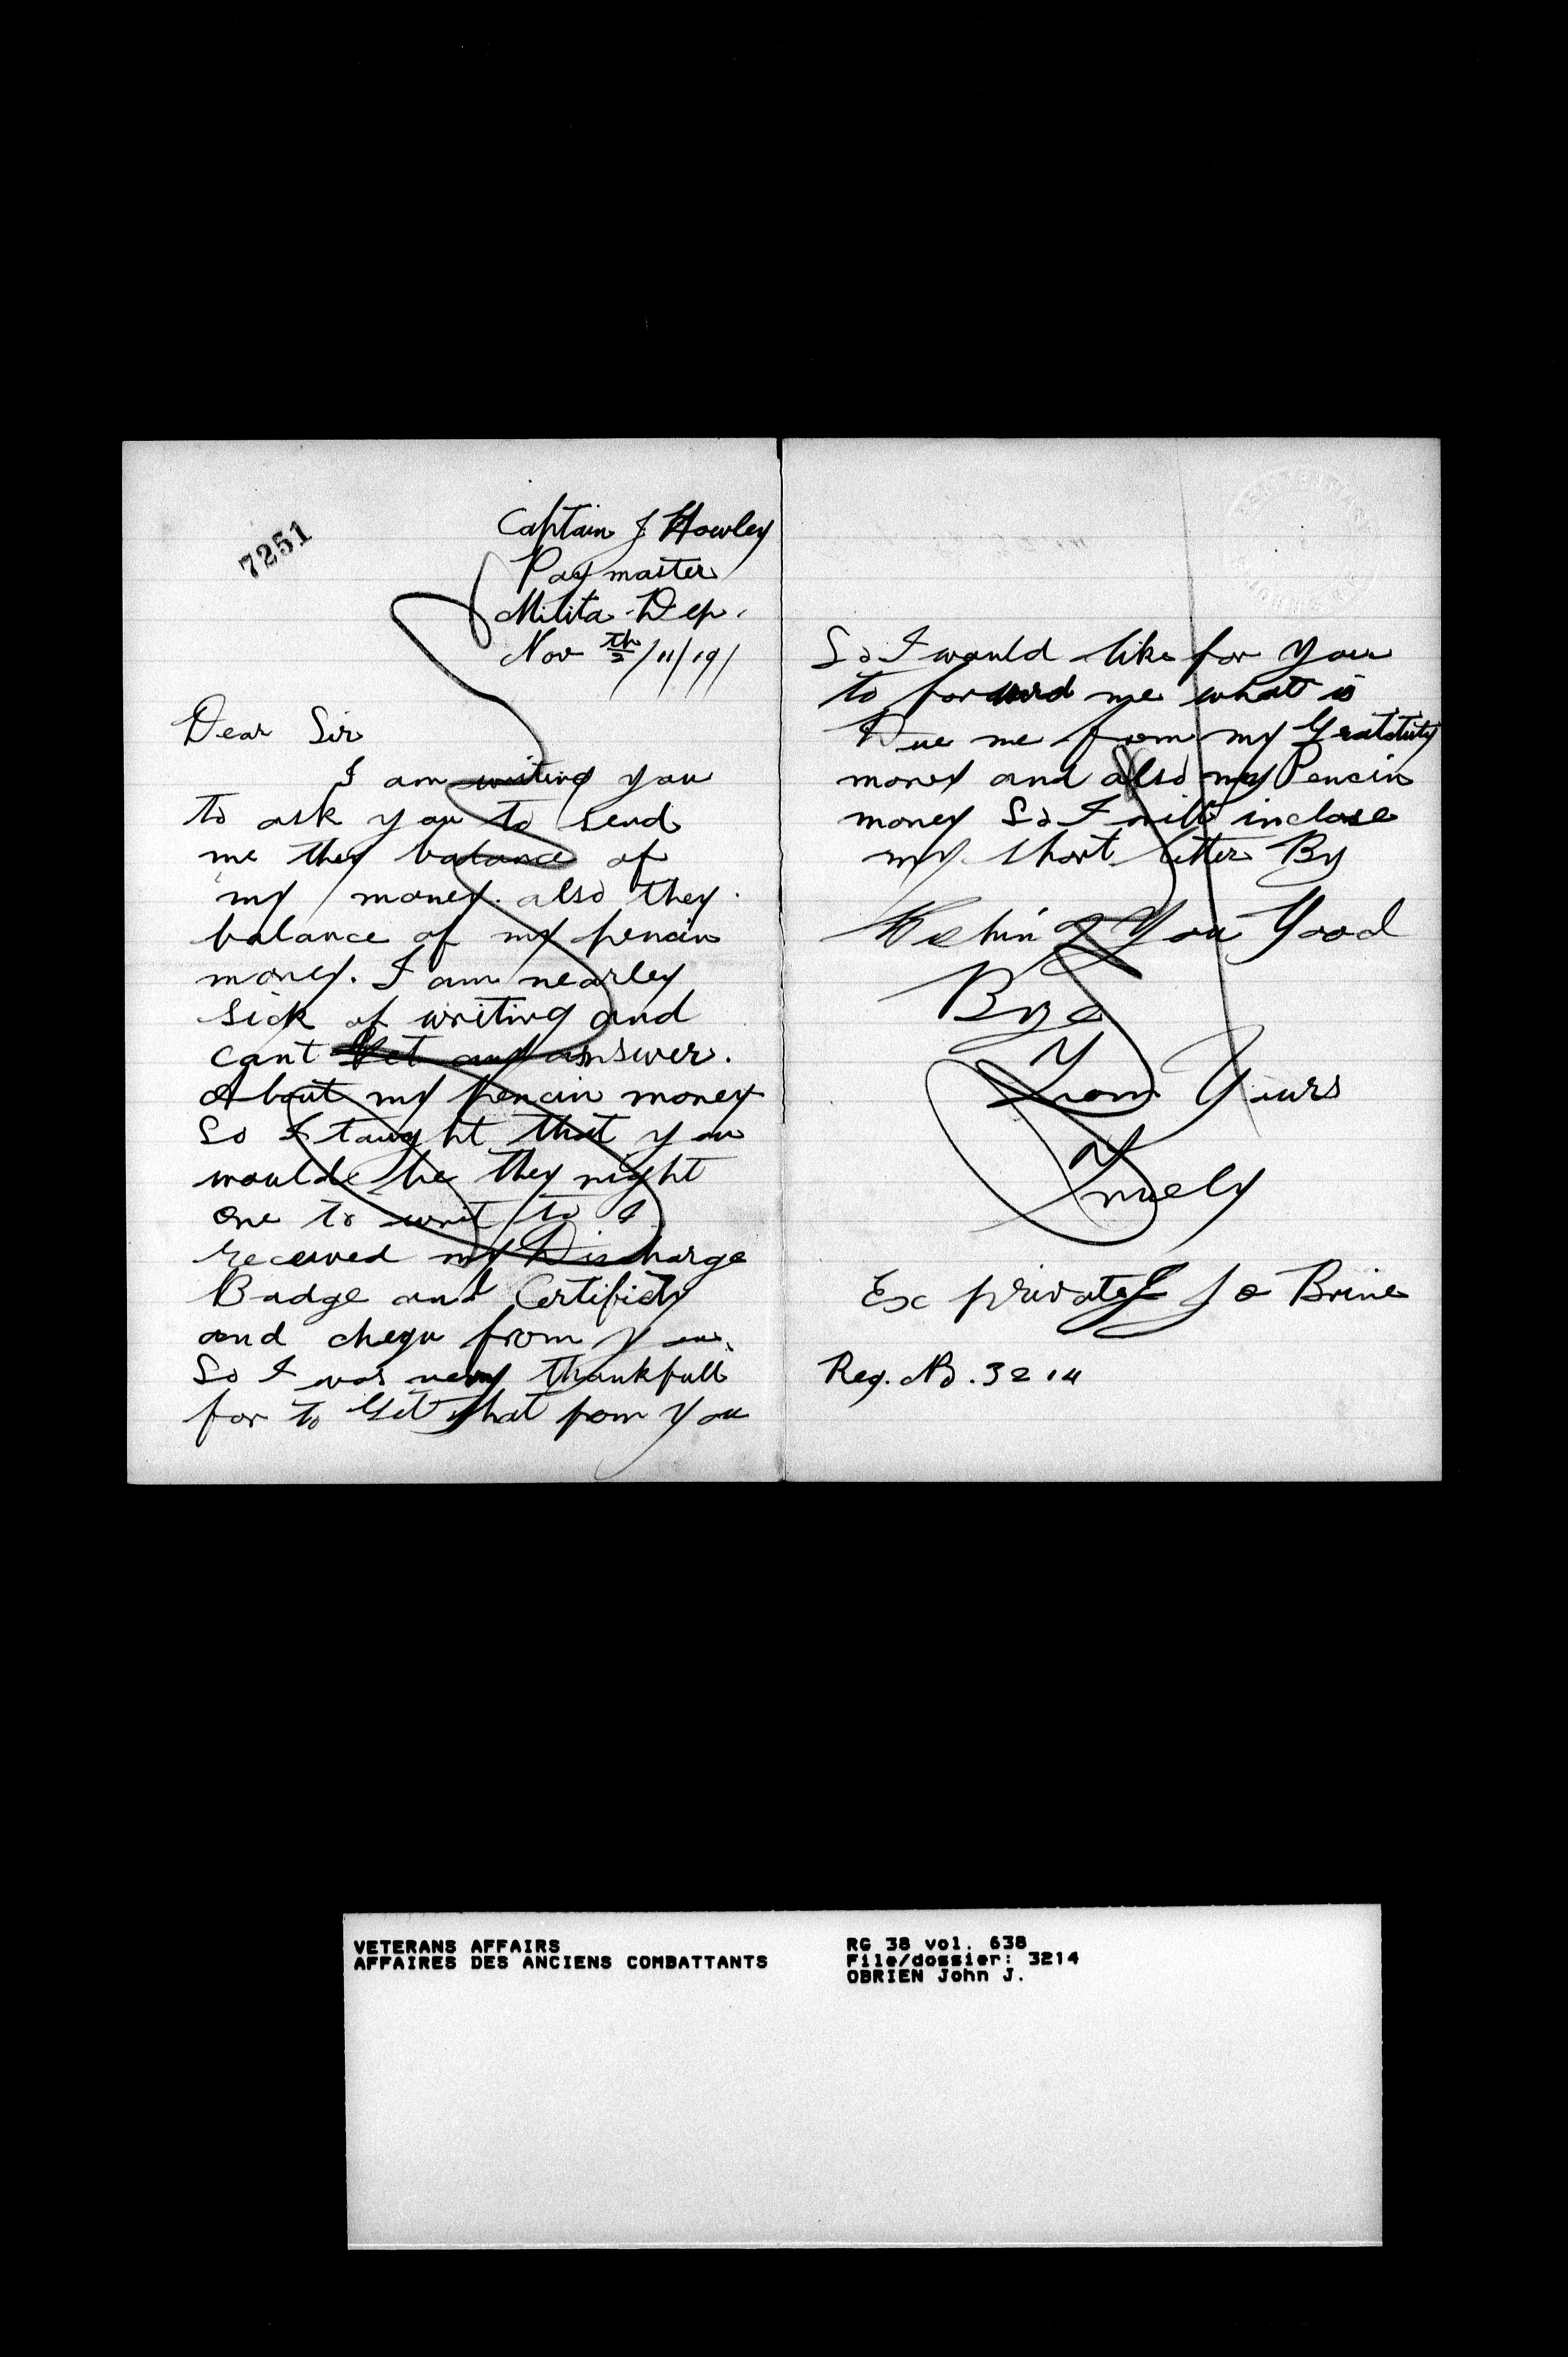 7251
Captain J Howley
Paymaster
Milita Dep.
Nov th/2 /11/19/
Dear Sir
I am writing you
to ask you to send
me they balance of
my money. also they
balance of my pencin
money. I am nearley
sick of writing and
cant Get any answer.
About my pencin money
So I taught that you
would be they right
one to writ to I
received my Discharge
Badge and Certificty
and chequ from you.
So I was very thankfull
for to Get that from you
So I would like for you
to forward me what is
Due me from my Gratduty
money and also my Pencin
money So I will inclose
my short letter By
Wishing You Good
Bye
From Yours
Truely
Ex private J O Brine
Reg. No. 3214
VETERANS AFFAIRS
AFFAIRES DES ANCIENS COMBATTANTS
RG 38 vol. 638
File/dossier: 3214
OBRIEN John J.